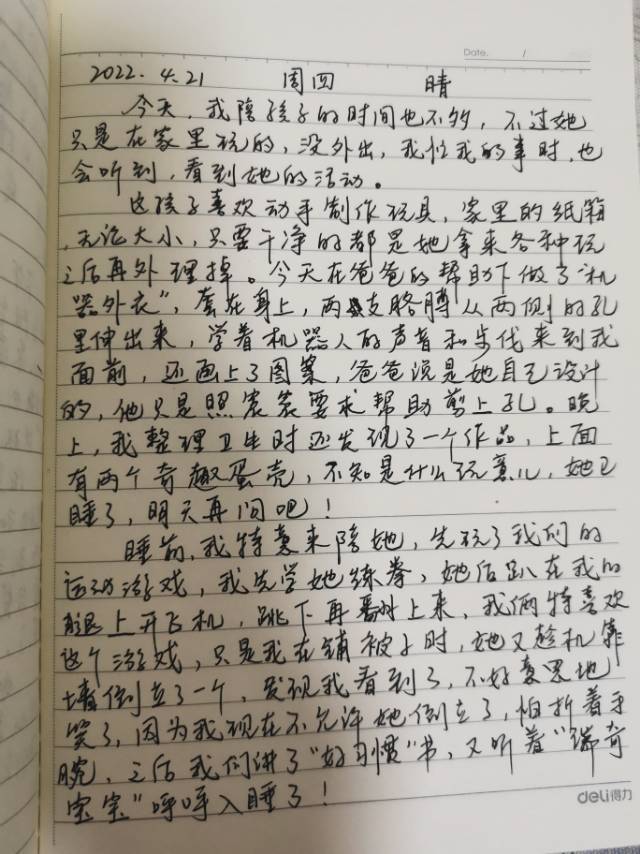 Date. /
2022.4.21 周四 晴
今天，我陪孩子的时间也不多，不过她
只是在家里玩的，没外出，我忙我的事时，也
会听到，看到她的活动。
这孩子喜欢动手制作玩具，家里的纸箱
，无论大小，只要干净的都是她拿来各种玩
之后再处理掉。今天在爸爸的帮助下做了“机
器外衣”，套在身上，两支胳膊从两侧的孔
里伸出来，学着机器人的声音和步伐来到我
面前，还画上了图案，爸爸说是她自己设计
的，他只是照要求帮助剪上孔。晚
上，我整理卫生时还发现了一个作品，上面
有两个奇趣蛋壳，不知是什么玩意儿，她已
睡了，明天再问吧！
睡前，我特意来陪她，先玩了我们的
运动游戏，我先学她练拳，她后趴在我的
腿上开飞机，跳下再上来，我俩特喜欢
这个游戏，只是我在铺被子时，她又趁机靠
墙倒立了一个，发现我看到了，不好意思地
笑了，因为我现在不允许她倒立了，怕折着手
腕，之后我们讲了“好习惯”书，又听着“瑞奇
宝宝”呼呼入睡了！
deli得力